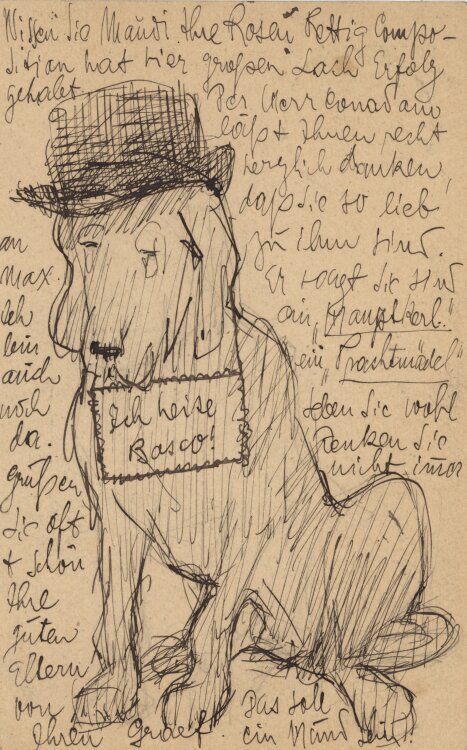 Wissen Sie Maudi Ihre Rosen Rettig Compo-
sition hat hier großen Lach Erfolg
gehabt.
Der Herr
läßt Ihnen recht
herzlich danken,
daß Sie so lieb
zu ihm sind.
Er sagt Sie sind
ein „Hauptkerl.“
ein „Prachtmädel“
Leben Sie wohl
Denken Sie
nicht immer
an
Max.
Ich
bin
auch
noch
da.
Grüßen
Sie oft
+ schön
Ihre
guten
Eltern
von
Ihren Graef.
Ich heise
Basco!
Das soll
ein Hund sein.